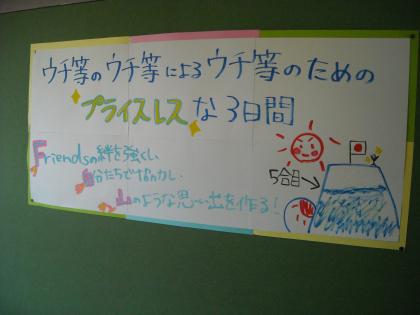 ウチ等のウチ等によるウチ等のための
プライスレスな3日間
Friendsの絆を強くし、
自分たちで協力し、
山のような思い出を作る!
5合目→